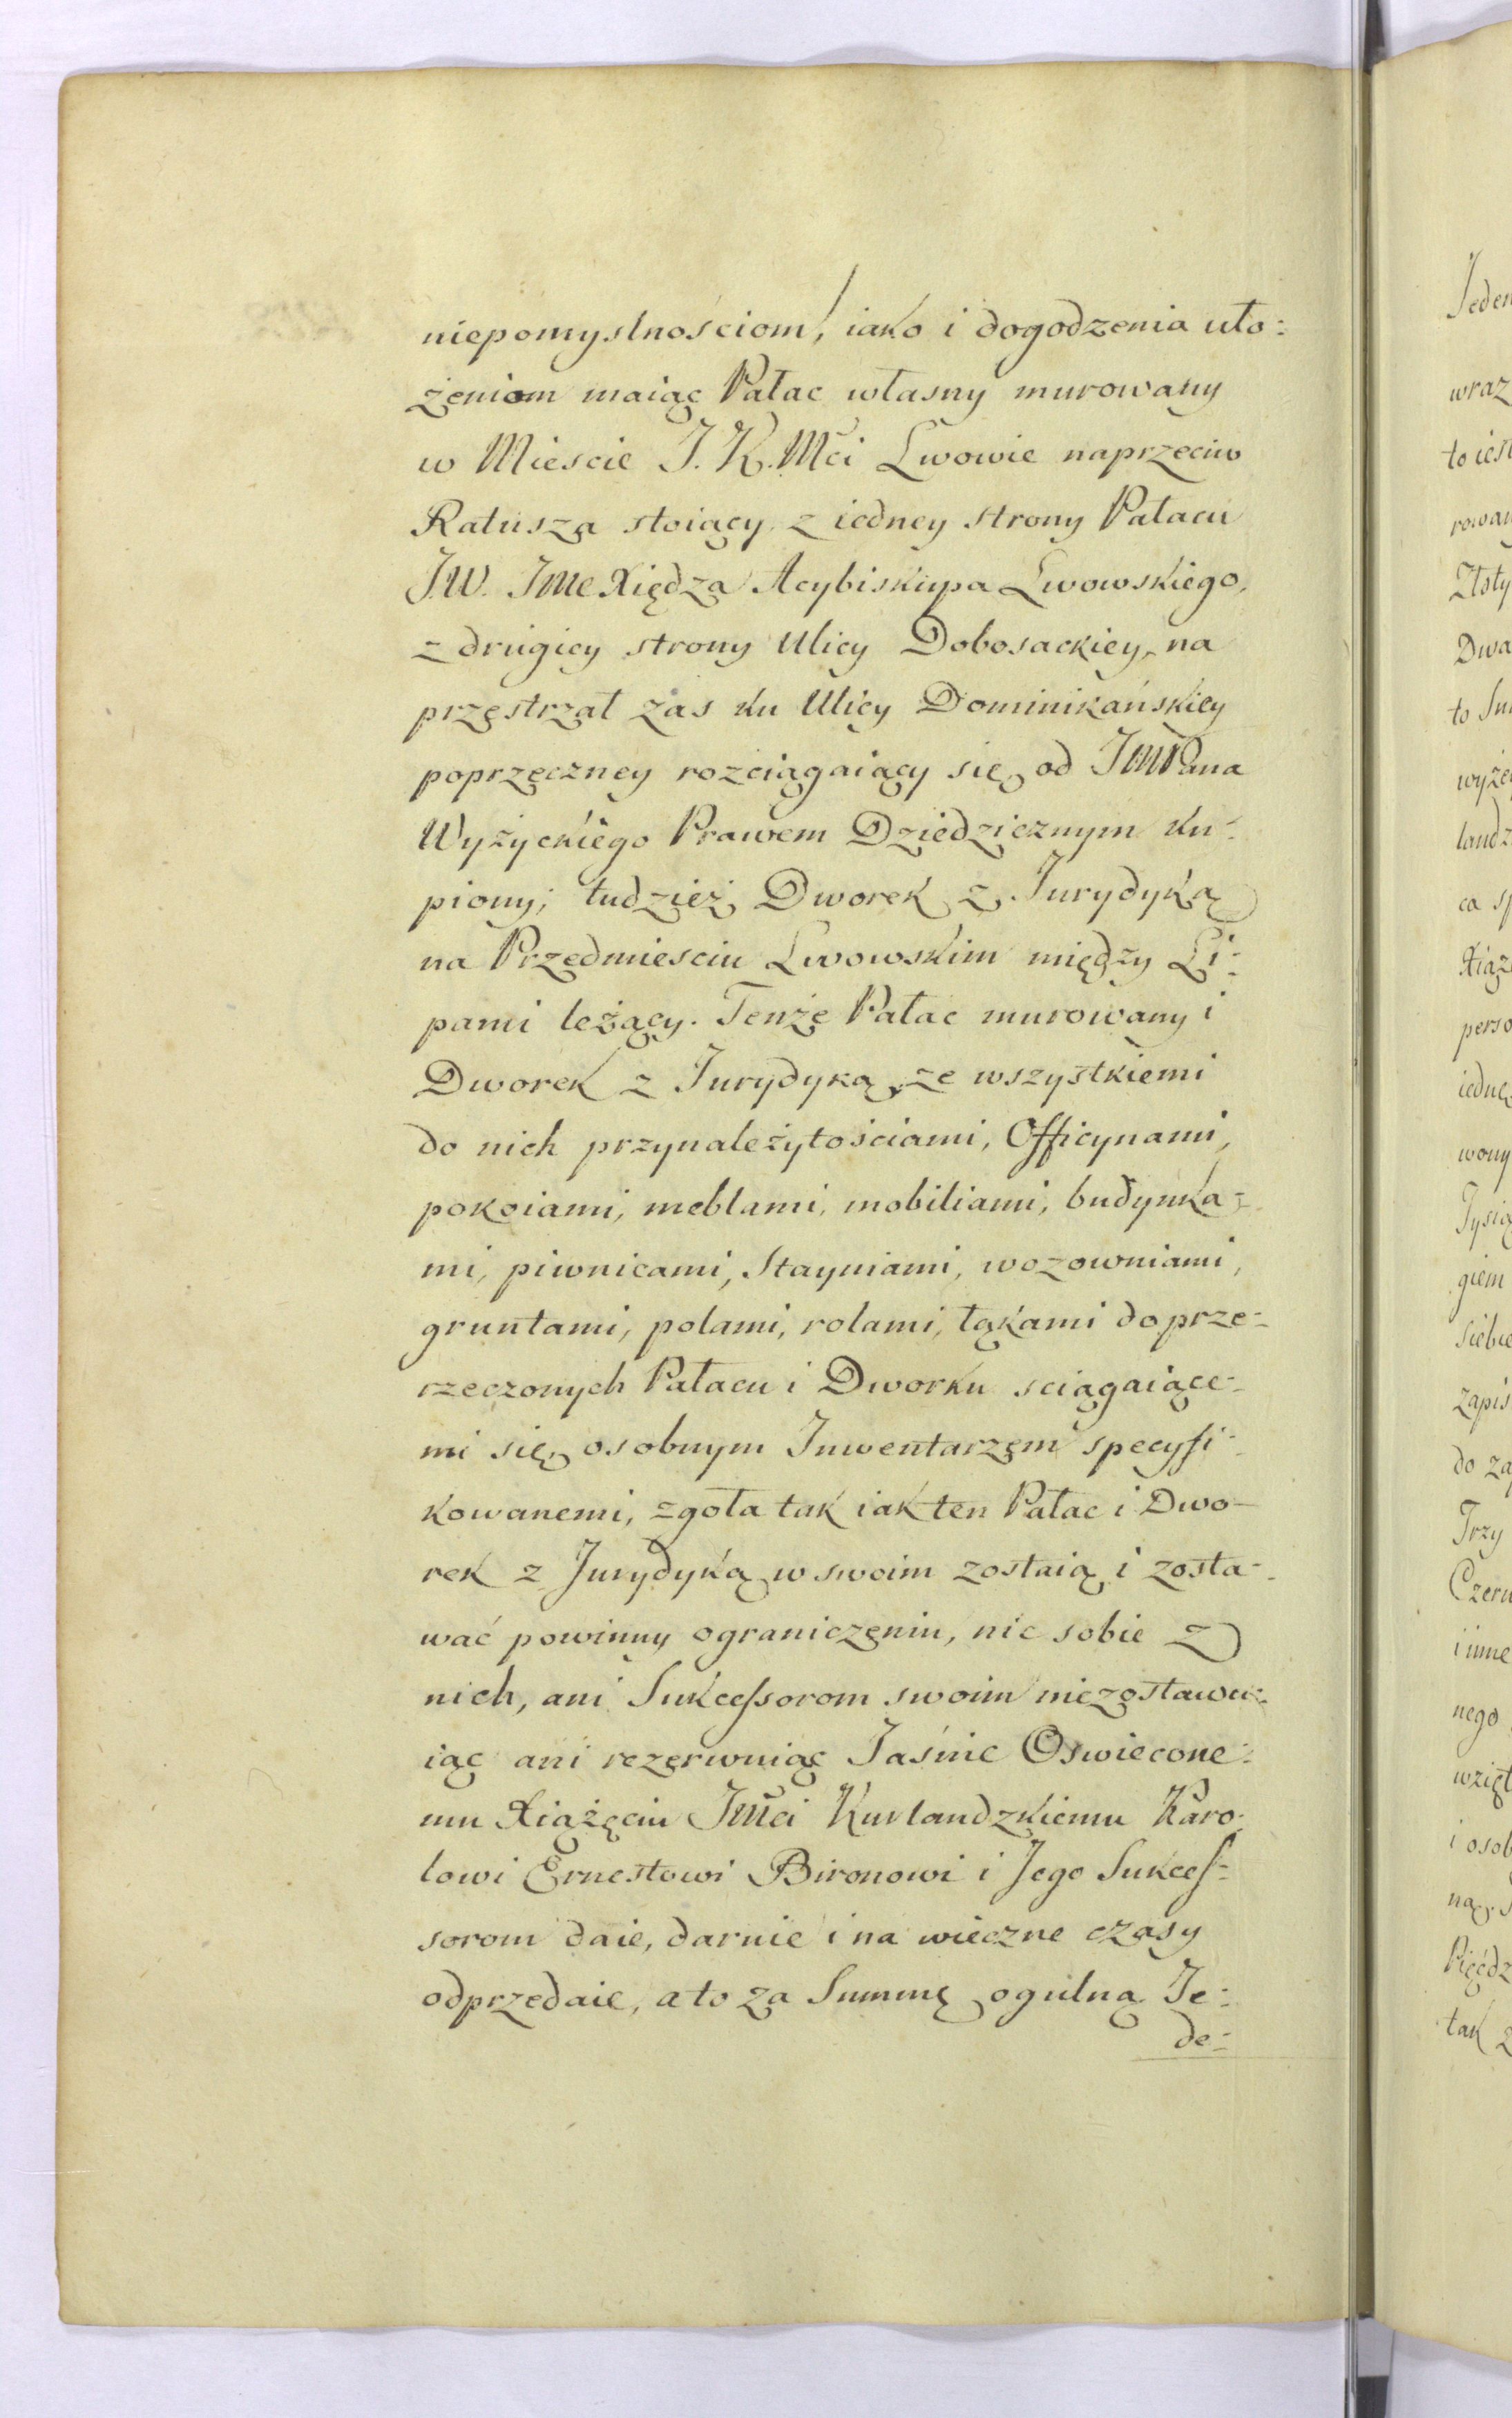 niepomyslnościom, iako i dogodzenia uło-
żeniom maiąc Pałac własny murowany
w Mieście J. K. Mći Lwowie naprzeciw
Ratusza stoiący z iedney strony Pałacu
J.W. Jmć Xiędza Acybiskupa Lwowskiego,
z drugiey strony Ulicy Dobosackiey, na
przestrzał zas ku Ulicy Dominikańskiey
poprzeczney rozciągaiący się, od JmPana
Wyżyckiego Prawem Dziedzicznym ku-
piony; tudzież Dworek z Jurydyką
na Przedmiesciu Lwowskim między Li-
pami leżący. Tenże Pałac murowany i
Dworek z Jurydyką, ze wszystkiemi
do nich przynależytościami, Officynami,
pokoiami, meblami, mobiliami, budynka-
mi, piwnicami, Stayniami, wozowniami,
gruntami, polami, rolami, łąkami do prze-
rzeczonych Pałacu i Dworku sciągaiące-
mi się, osobnym Inwentarzem specyfi-
kowanemi, zgoła tak iak ten Pałac i Dwo-
rek z Jurydyką w swoim zostaią i zosta-
wać powinny ograniczeniu, nic sobie z
nich, ani Sukcessorom swoim niezostawu-
iąc ani rezerwuiąc Jaśnie Oswiecone-
mu Xiążęciu Jmći Kurlandzkiemu Karo-
lowi Ernestowi Bironowi i Jego Sukces-
sorom daie, daruie i na wieczne czasy
odprzedaie, a to za Summę ogulną Je-
de-
Jeden
wraz
to iest
Złoty
Dwa
to
ca
perso
wony
giem
siebie
zapis
do za
Trzy
i inne
nego
wzięt
i osob
ną
tak z